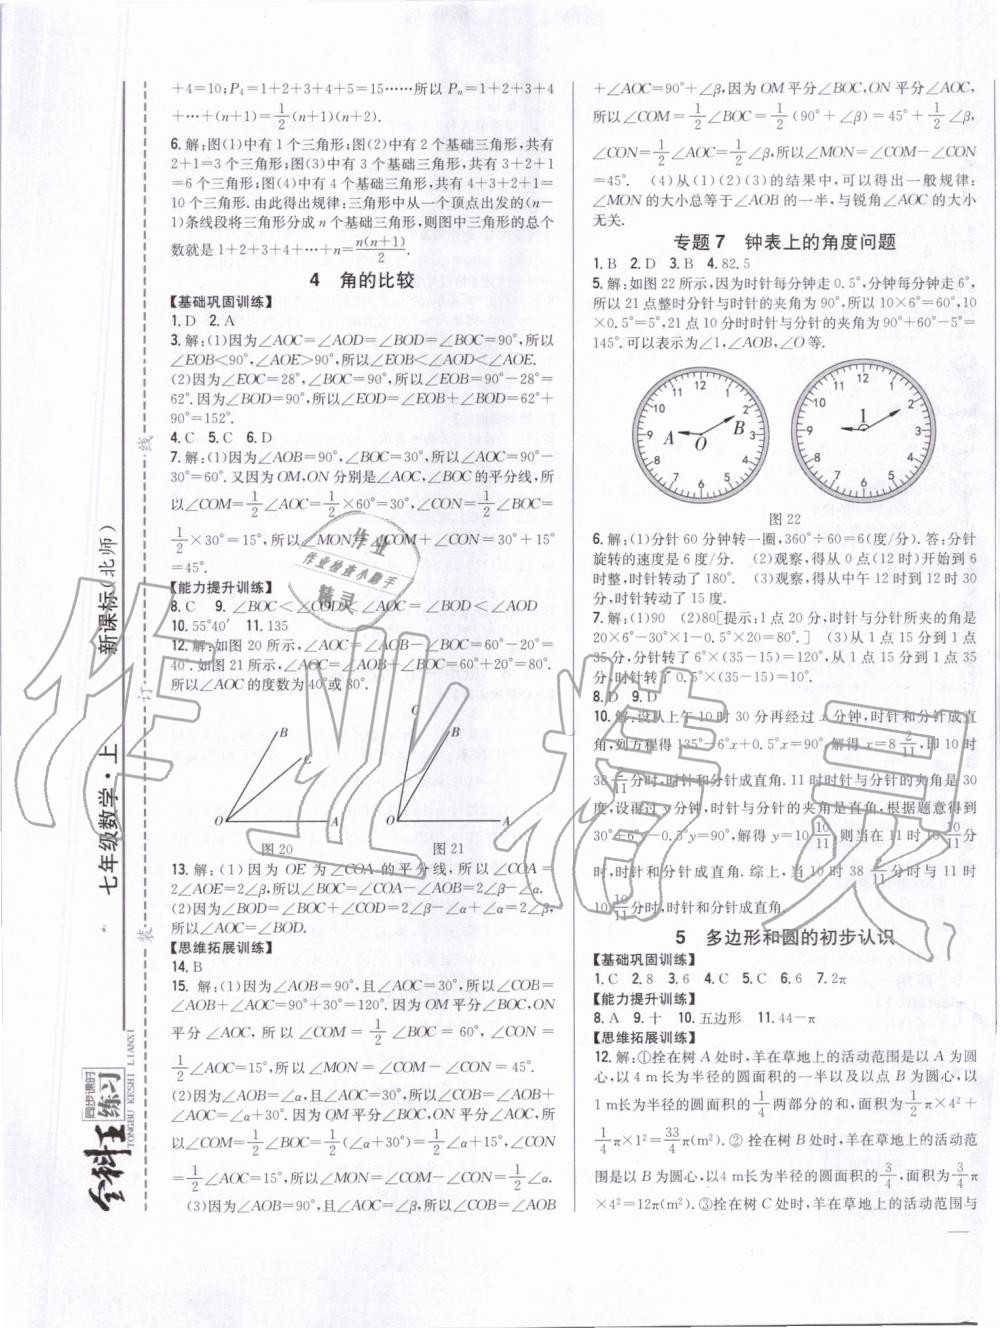 +4=10;P₄=1+2+3+4+5=15……所以 Pₙ=1+2+3+4
+…+(n+1)=1/2(n+1)(n+2).
6.解:图(1)中有1个三角形;图(2)中有2个基础三角形,共有
2+1=3个三角形;图(3)中有3个基础三角形,共有3+2+1
=6个三角形;图(4)中有4个基础三角形,共有4+3+2+1=
10个三角形.由此得出规律:三角形中从一个顶点出发的(n-
1)条线段将三角形分成n个基础三角形,则图中三角形的总个
数就是1+2+3+4+…+n=n(n+1)/2.
4 角的比较
【基础巩固训练】
1.D 2.A
3.解:(1)因为∠AOC=∠AOD=∠BOD=∠BOC=90°,所以
∠EOB<90°,∠AOE>90°,所以∠EOB<∠AOD<∠AOE.
(2)因为∠EOC=28°,∠BOC=90°,所以∠EOB=90°-28°=
62°.因为∠BOD=90°,所以∠EOD=∠EOB+∠BOD=62°+
90°=152°.
4.C 5.C 6.D
7.解:(1)因为∠AOB=90°,∠BOC=30°,所以∠AOC=90°-
30°=60°.又因为OM,ON分别是∠AOC,∠BOC的平分线,所
以∠COM=1/2∠AOC=1/2×60°=30°,∠CON=1/2∠BOC=
1/2×30°=15°,所以∠MON=∠COM+∠CON=30°+15°
=45°.
【能力提升训练】
8.C 9.∠BOC<∠COD ∠AOC=∠BOD<∠AOD
10.55°40′ 11.135
12.解:如图20所示,∠AOC=∠AOB-∠BOC=60°-20°=
40°.如图21所示,∠AOC=∠AOB+∠BOC=60°+20°=80°.
所以∠AOC的度数为40°或80°.
B C O A
C B O A
图20 图21
13.解:(1)因为OE为∠COA的平分线,所以∠COA=
2∠AOE=2∠β,所以∠BOC=∠COA-∠AOB=2∠β-∠α.
(2)因为∠BOD=∠BOC+∠COD=2∠β-∠α+∠α=2∠β,
所以∠AOC=∠BOD.
【思维拓展训练】
14.B
15.解:(1)因为∠AOB=90°,且∠AOC=30°,所以∠COB=
∠AOB+∠AOC=90°+30°=120°.因为OM平分∠BOC,ON
平分∠AOC,所以∠COM=1/2∠BOC=60°,∠CON=
1/2∠AOC=15°,所以∠MON=∠COM-∠CON=45°.
(2)因为∠AOB=∠α,且∠AOC=30°,所以∠COB=∠AOB+
∠AOC=∠α+30°.因为OM平分∠BOC,ON平分∠AOC,所
以∠COM=1/2∠BOC=1/2(∠α+30°)=1/2∠α+15°,∠CON
=1/2∠AOC=15°,所以∠MON=∠COM-∠CON=1/2∠α.
(3)因为∠AOB=90°,且∠AOC=∠β,所以∠COB=∠AOB
+∠AOC=90°+∠β,因为OM平分∠BOC,ON平分∠AOC,
所以∠COM=1/2∠BOC=1/2(90°+∠β)=45°+1/2∠β,
∠CON=1/2∠AOC=1/2∠β,所以∠MON=∠COM-∠CON
=45°. (4)从(1)(2)(3)的结果中,可以得出一般规律:
∠MON的大小总等于∠AOB的一半,与锐角∠AOC的大小
无关.
专题7 钟表上的角度问题
1.B 2.D 3.B 4.82.5
5.解:如图22所示,因为时针每分钟走0.5°,分钟每分钟走6°,
所以21点整时分针与时针的夹角为90°,所以10×6°=60°,10
×0.5°=5°,21点10分时时针与分针的夹角为90°+60°-5°=
145°.可以表示为∠1,∠AOB,∠O等.
12 1 2 3 4 5 6 7 8 9 10 11 A O B
12 1 2 3 4 5 6 7 8 9 10 11 1
图22
6.解:(1)分针60分钟转一圈,360°÷60=6(度/分).答:分针
旋转的速度是6度/分. (2)观察,得从0点(12时)开始到6
时整,时针转动了180°. (3)观察,得从中午12时到12时30
分,时针转动了15度.
7.解:(1)90 (2)80[提示:1点20分,时针与分针所夹的角是
20×6°-30°×1-0.5°×20=80°.] (3)从1点15分到1点
35分,分针转了6°×(35-15)=120°,从1点15分到1点35
分,时针转了0.5°×(35-15)=10°.
8.D 9.D
10.解:设从上午10时30分再经过x分钟,时针和分针成直
角,列方程得135°-6°x+0.5°x=90°,解得x=8 2/11,即10时
38 2/11分时,时针和分针成直角.11时时针与分针的夹角是30
度,设再过y分钟,时针与分针的夹角是直角,根据题意得到
30°+6°y-0.5°y=90°,解得y=10 10/11,则当在11时10 10/11分
时,时针和分针成直角.综上,当10时38 2/11分时与11时
10 10/11分时,时针和分针成直角.
5 多边形和圆的初步认识
【基础巩固训练】
1.C 2.8 3.6 4.C 5.C 6.6 7.2π
【能力提升训练】
8.A 9.十 10.五边形 11.44-π
【思维拓展训练】
12.解:①拴在树A处时,羊在草地上的活动范围是以A为圆
心,以4m长为半径的圆面积的一半以及以点B为圆心,以
1m长为半径的圆面积的1/4两部分的和,面积为1/2π×4²+
1/4π×1²=33/4π(m²).②拴在树B处时,羊在草地上的活动范
围是以B为圆心,以4m长为半径的圆面积的3/4,面积为3/4π
×4²=12π(m²).③拴在树C处时,羊在草地上的活动范围与
七年级数学·上 新课标(北师)
装 订 线
全科王 同步课时 练习
TONGBU KESHI LIANXI
作业
作业检查小助手
精灵
作业精灵